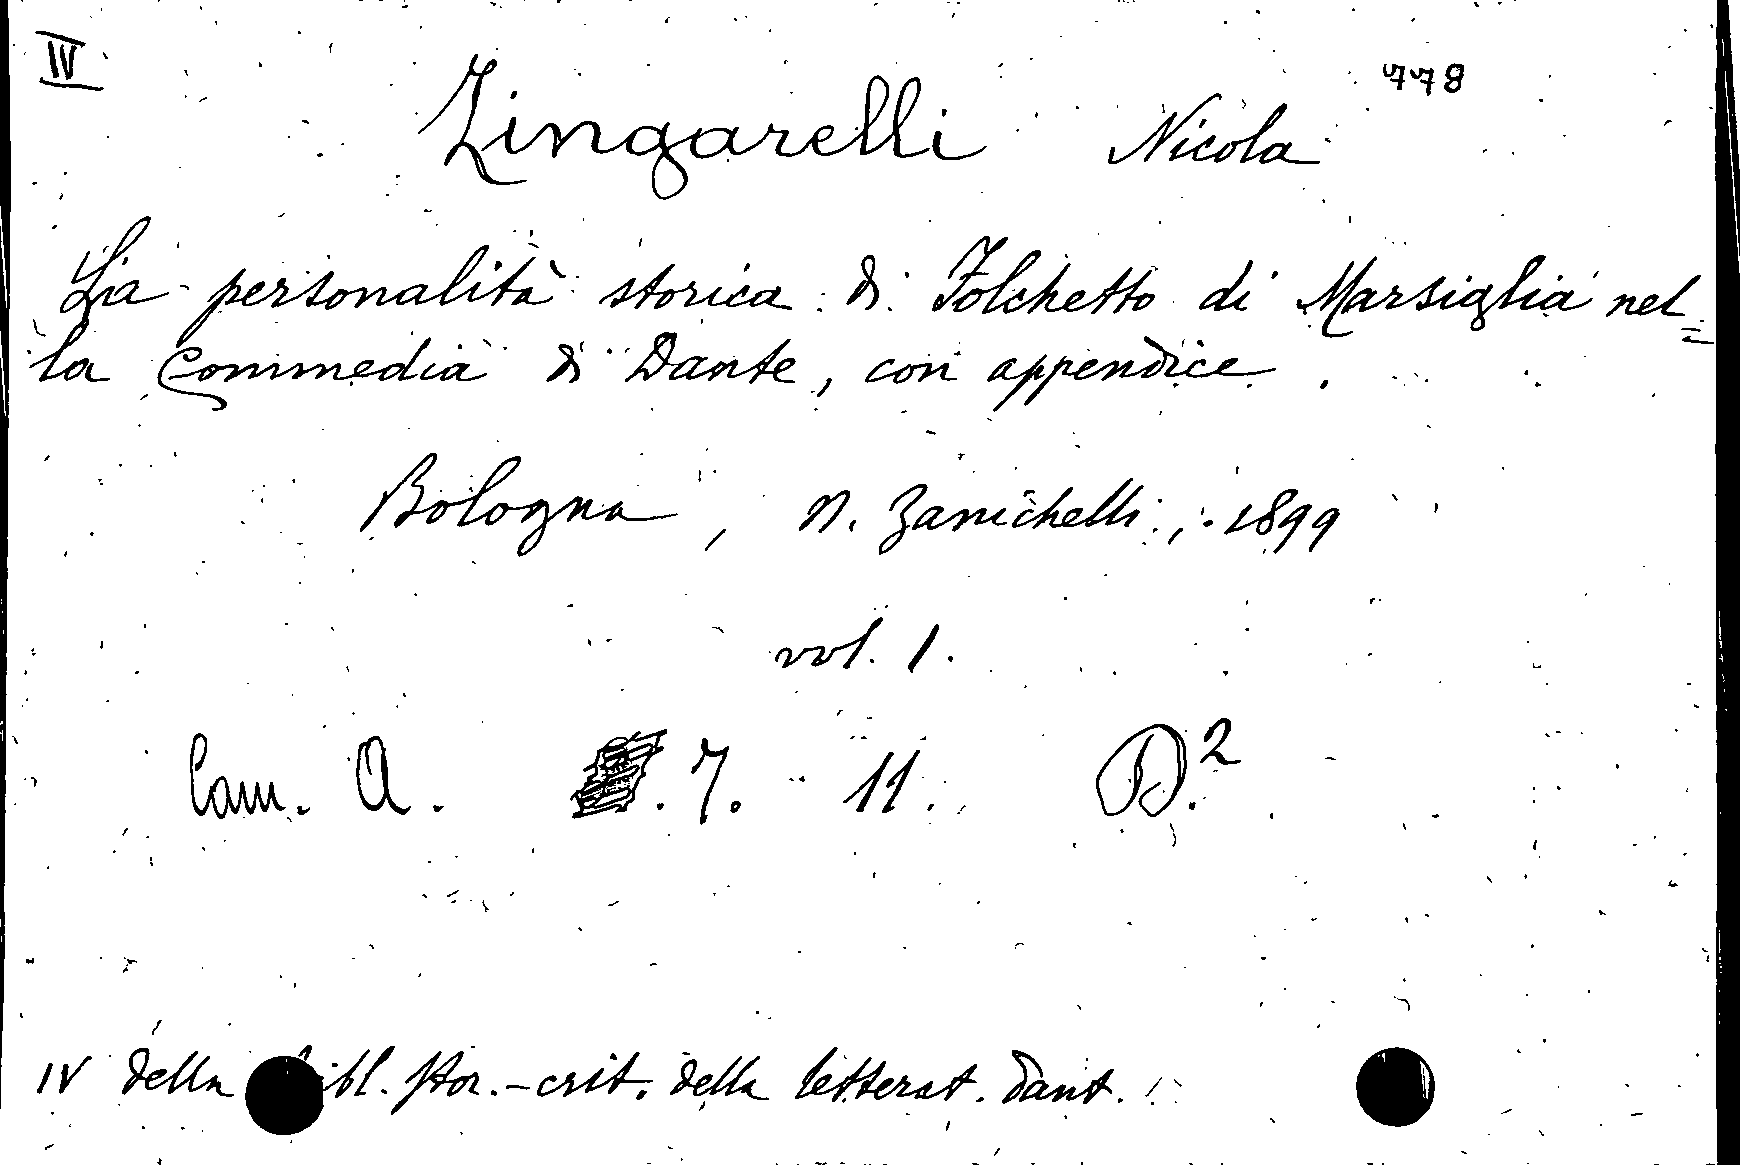 IV 778
Zingarelli Nicola
La personalità storica di Folchetto di Marsiglia nel=
la Commedia di Dante, con appendice.
Bologna, N. Zanichelli, 1899
vol. 1.
Cam. A. 7. 11. D.²
IV della ibl. stor.-crit. della letterat. dant.